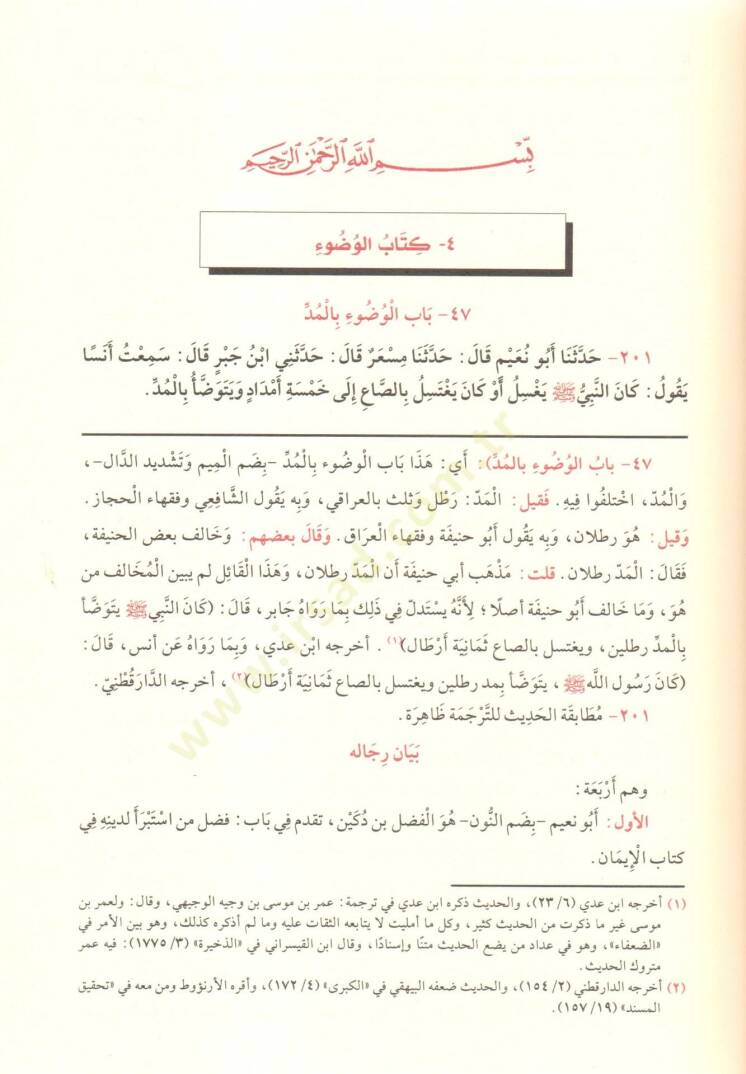 بِسْمِ اللَّهِ الرَّحْمَٰنِ الرَّحِيمِ
٤- كِتَابُ الوُضُوءِ
٤٧- بَاب الْوُضُوءِ بِالْمُدِّ
٢٠١- حَدَّثَنَا أَبُو نُعَيْمٍ قَالَ: حَدَّثَنَا مِسْعَرٌ قَالَ: حَدَّثَنِي ابْنُ جَبْرٍ قَالَ: سَمِعْتُ أَنَسًا
يَقُولُ: كَانَ النَّبِيُّ ﷺ يَغْسِلُ أَوْ كَانَ يَغْتَسِلُ بِالصَّاعِ إِلَى خَمْسَةِ أَمْدَادٍ وَيَتَوَضَّأُ بِالْمُدِّ.
٤٧- بابُ الوُضُوءِ بالمُدِّ): أَي: هَذَا بَاب الْوضُوء بِالْمُدِّ -بِضَم الْمِيم وَتَشْديد الدَّال-،
وَالْمُدّ، اخْتلفُوا فِيهِ. فَقيل: الْمَدّ: رَطْل وَثلث بالعراقي، وَبِه يَقُول الشَّافِعِي وفقهاء الْحجاز.
وَقيل: هُوَ رطلان، وَبِه يَقُول أَبُو حنيفَة وفقهاء الْعرَاق. وَقَالَ بَعضهم: وَخَالف بعض الحنيفة،
فَقَالَ: الْمَدّ رطلان. قلت: مَذْهَب أبي حنيفَة أَن الْمَدّ رطلان، وَهَذَا الْقَائِل لم يبين الْمُخَالف من
هُوَ، وَمَا خَالف أَبُو حنيفَة أصلًا؛ لِأَنَّهُ يسْتَدلّ فِي ذَلِك بِمَا رَوَاهُ جَابر، قَالَ: (كَانَ النَّبِي ﷺ يتَوَضَّأ
بِالْمدِّ رطلين، ويغتسل بالصاع ثَمَانِيَة أَرْطَال)(١). أخرجه ابْن عدي، وَبِمَا رَوَاهُ عَن أنس، قَالَ:
(كَانَ رَسُول اللَّه ﷺ، يتَوَضَّأ بِمد رطلين ويغتسل بالصاع ثَمَانِيَة أَرْطَال)(٢)، أخرجه الدَّارَقُطْنِيّ.
٢٠١- مُطَابقَة الحَدِيث للتَّرْجَمَة ظَاهِرَة.
بَيَان رِجَاله
وهم أَرْبَعَة:
الأول: أَبُو نعيم -بِضَم النُّون- هُوَ الْفضل بن دُكَيْن، تقدم فِي بَاب: فضل من اسْتَبْرَأَ لدينِهِ فِي
كتاب الْإِيمَان.
(١) أخرجه ابن عدي (٦/ ٢٣)، والحديث ذكره ابن عدي في ترجمة: عمر بن موسى بن وجيه الوجيهي، وقال: ولعمر بن
موسى غير ما ذكرت من الحديث كثير، وكل ما أمليت لا يتابعه الثقات عليه وما لم أذكره كذلك، وهو بين الأمر في
«الضعفاء»، وهو في عداد من يضع الحديث متنًا وإسنادًا، وقال ابن القيسراني في «الذخيرة» (٣/ ١٧٧٥): فيه عمر
متروك الحديث.
(٢) أخرجه الدارقطني (٢/ ١٥٤)، والحديث ضعفه البيهقي في «الكبرى» (٤/ ١٧٢)، وأقره الأرنؤوط ومن معه في «تحقيق
المسند» (١٩/ ١٥٧).
www.irsad.com.tr